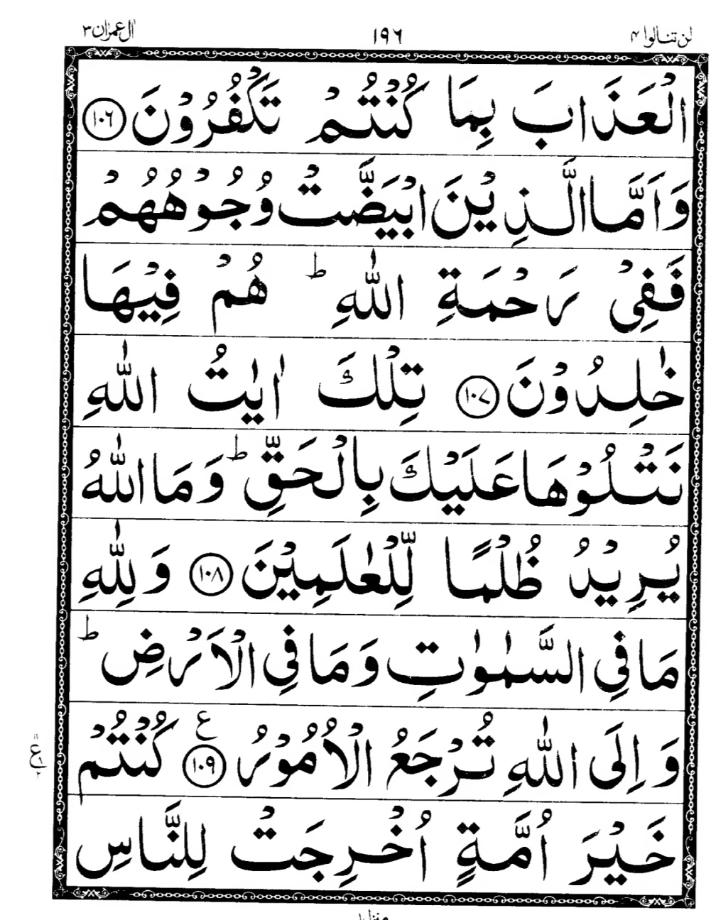 لن تنالوا ۴ ۱۹۶ اٰل عمرٰن ۳
الْعَذَابَ بِمَا كُنْتُمْ تَكْفُرُوْنَ ۝۱۰۶
وَاَمَّا الَّذِيْنَ ابْيَضَّتْ وُجُوْهُهُمْ
فَفِيْ رَحْمَةِ اللّٰهِ ؕ هُمْ فِيْهَا
خٰلِدُوْنَ ۝۱۰۷ تِلْكَ اٰيٰتُ اللّٰهِ
نَتْلُوْهَا عَلَيْكَ بِالْحَقِّ ؕ وَمَا اللّٰهُ
يُرِيْدُ ظُلْمًا لِّلْعٰلَمِيْنَ ۝۱۰۸ وَلِلّٰهِ
مَا فِي السَّمٰوٰتِ وَمَا فِي الْاَرْضِ ؕ
وَاِلَى اللّٰهِ تُرْجَعُ الْاُمُوْرُ ۝۱۰۹ ع كُنْتُمْ
خَيْرَ اُمَّةٍ اُخْرِجَتْ لِلنَّاسِ
منزل ۱